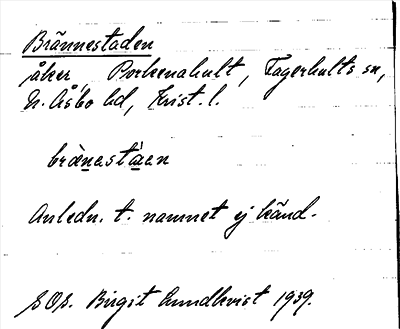 Brännestaden
åker Porkenahult, Fagerhults sn,
N. Åsbo hd, Krist. l.
brànestáen
Anledn. t. namnet ej känd.
SOS. Birgit Lundkvist 1939.